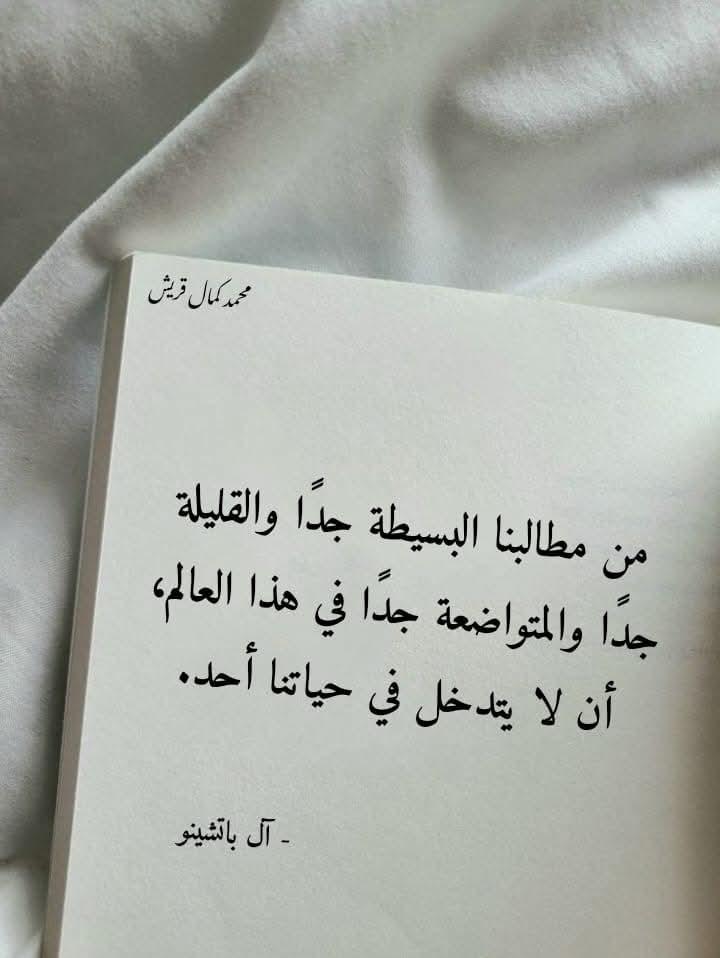 محمد كمال قريش
من مطالبنا البسيطة جدًا والقليلة
جدًا والمتواضعة جدًا في هذا العالم،
أن لا يتدخل في حياتنا أحد.
- آل باتشينو